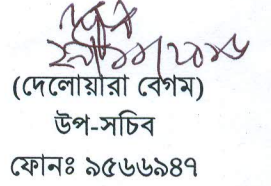 (দেলোয়ারা বেগম)
উপ-সচিব
ফোনঃ ৯৫৬৬৯৪৭